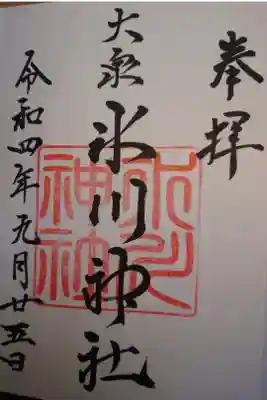 奉拝
大泉
氷川神社
令和四年元月廿五日
氷川神社